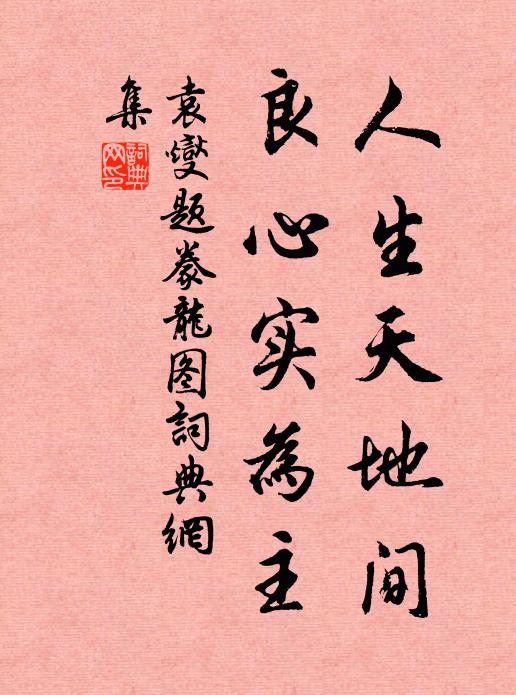 人生天地间
良心实為主
袁燮题豢龍图詞典網
集
詞典
网印